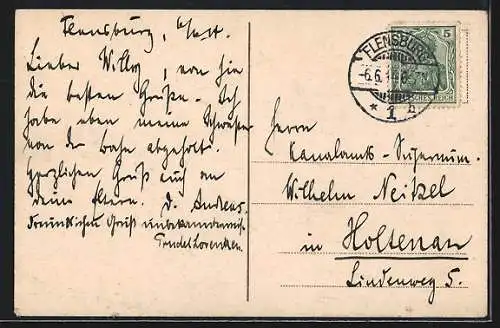 Flensburg,
Lieber Willy, von hier
die besten Grüße. Ich
habe eben meine Schwester
von der Bahn abgeholt.
Herzlichen Gruß auch an
deine Eltern. D. Andreas.
Freundlichen Gruß unbekannterweise
Trudel Lorenzen.
FLENSBURG
-6.6.
* 1 h
5
DEUTSCHES REICH
Herrn
Kanalamts-
Wilhelm Neitzel
in Holtenau
Lindenweg 5.